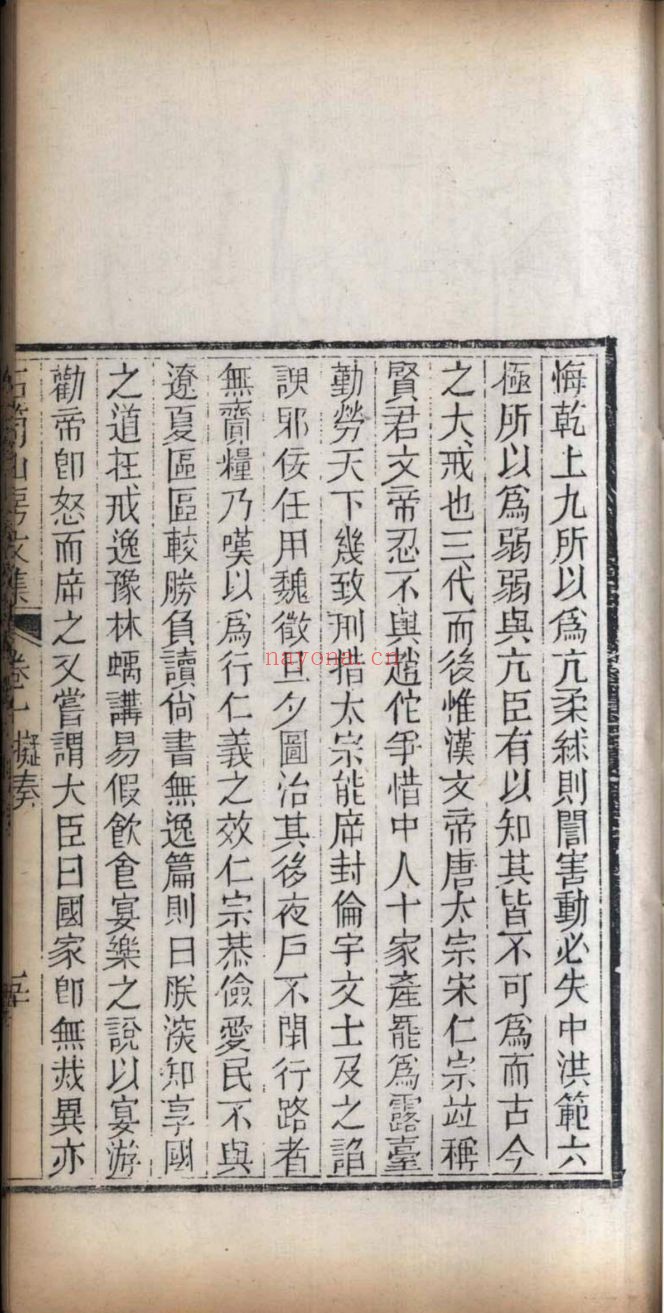 悔乾上九所以爲亢柔絿則闇害動必失中洪範六
極所以爲弱弱與亢臣有以知其皆不可爲而古今
之大戒也三代而後惟漢文帝唐太宗宋仁宗竝稱
賢君文帝忍不與趙佗爭惜中人十家產罷爲露臺
勤勞天下幾致刑措太宗能庰封倫宇文士及之諂
諛邪佞任用魏徵旦夕圖治其後夜戶不閉行路者
無齎糧乃嘆以爲行仁義之效仁宗恭儉愛民不與
遼夏區區較勝負讀尚書無逸篇則曰朕深知享國
之道在戒逸豫林瑀講易假飲食宴樂之說以宴游
勸帝卽怒而庰之又嘗謂大臣曰國家卽無烖異亦
石笥山房文集 擬奏
nayona.cn